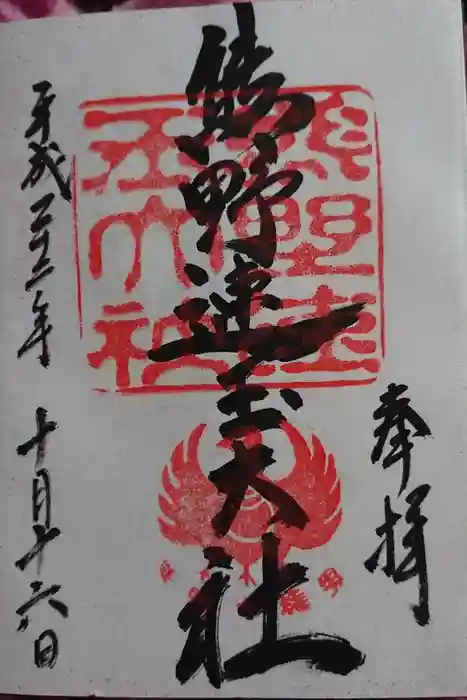 奉拝
熊野速玉大社
熊野速
玉大社
平成二十二年 十月十六日